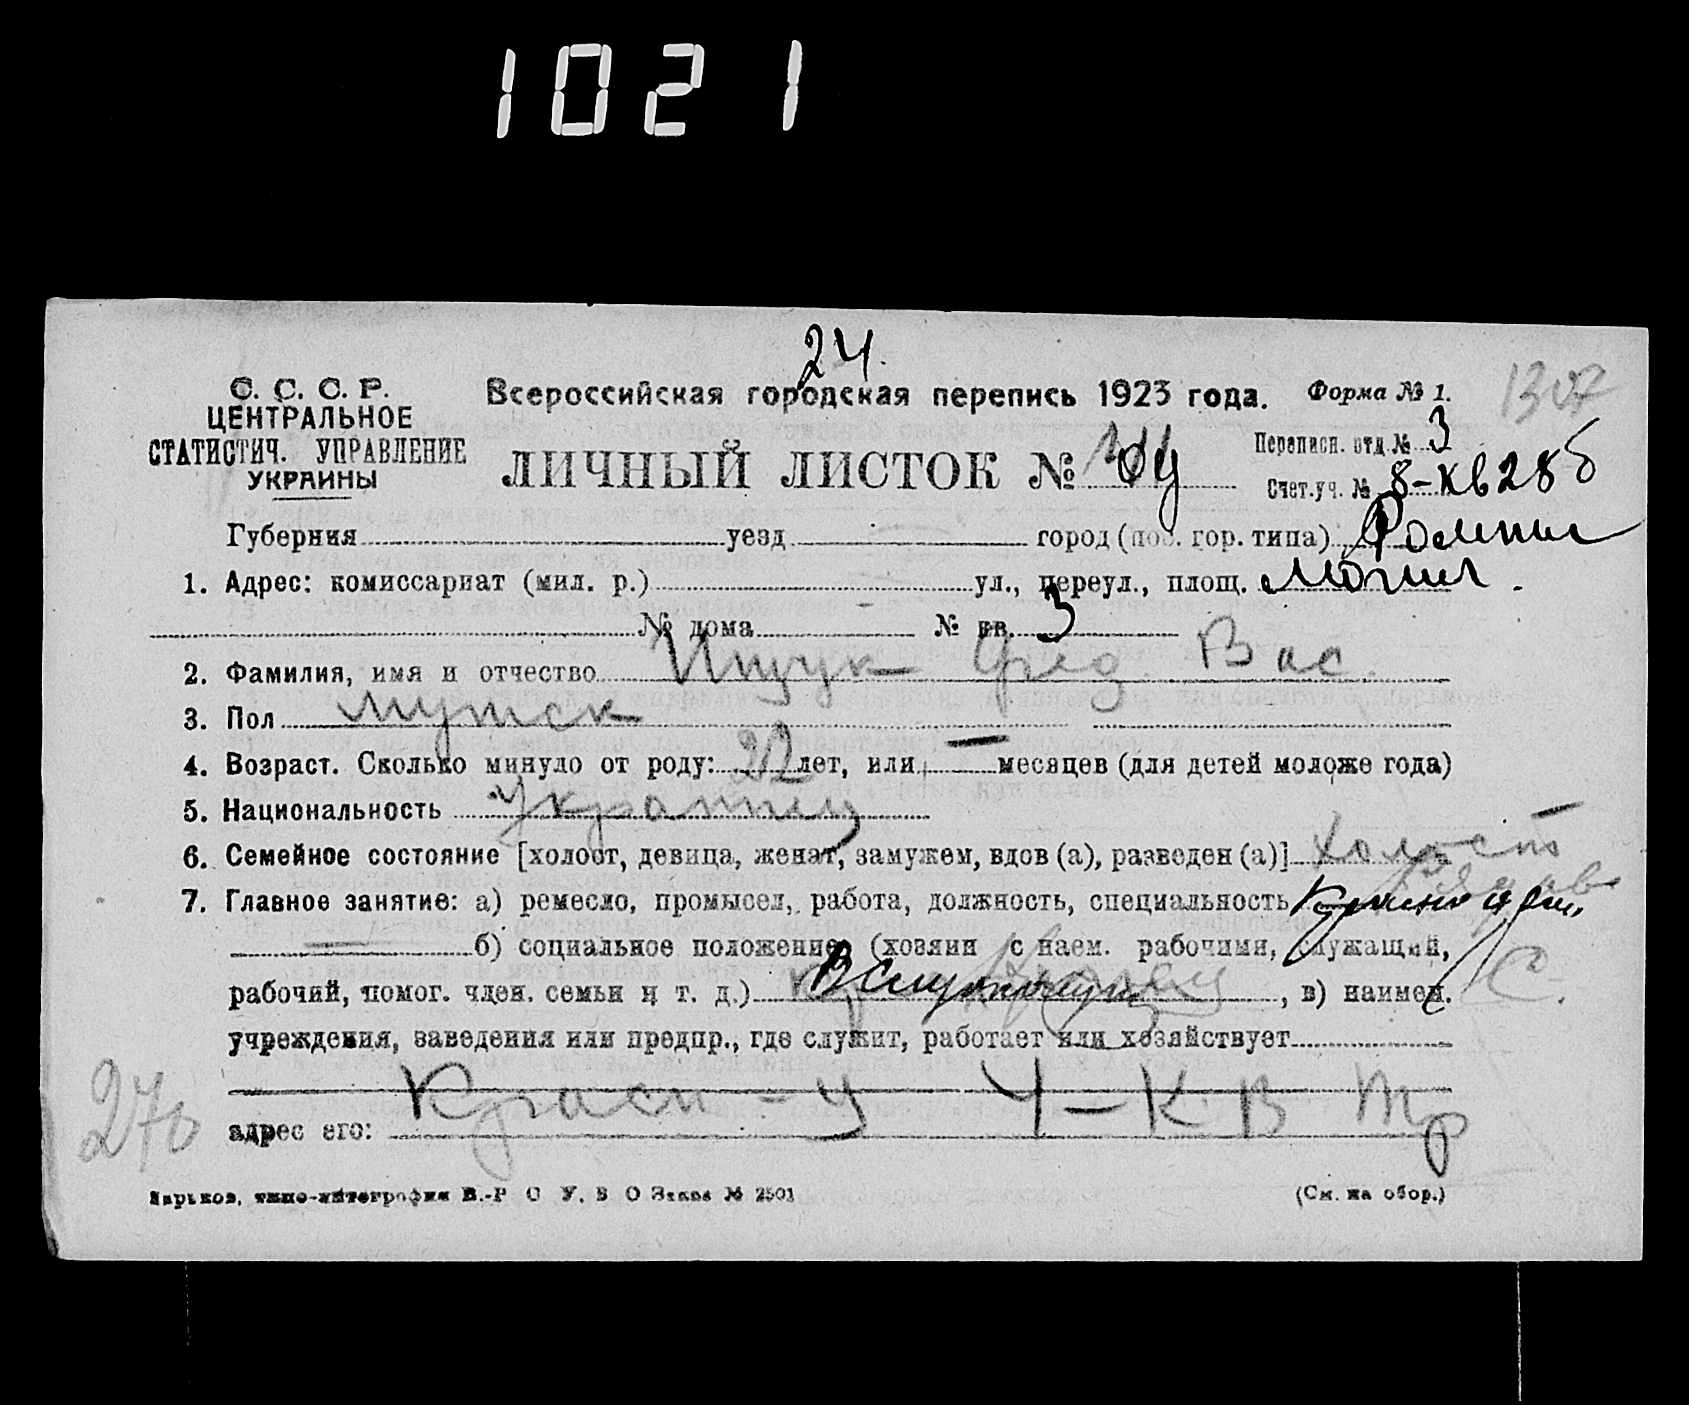 1021
24.
С. С. С. Р.
ЦЕНТРАЛЬНОЕ
СТАТИСТИЧ. УПРАВЛЕНИЕ
УКРАИНЫ
Всероссийская городская перепись 1923 года. Форма № 1. 1307
ЛИЧНЫЙ ЛИСТОК №
Переписн. отд. № 3
Счет. уч. № 8-кв 286
Губерния уезд город (пос. гор. типа) Ромны
1. Адрес: комиссариат (мил. р.) ул., переул., площ. Могил.
№ дома № кв. 3
2. Фамилия, имя и отчество Ищук Фед. Вас.
3. Пол мужск
4. Возраст. Сколько минуло от роду: 22 лет, или — месяцев (для детей моложе года)
5. Национальность Украинец
6. Семейное состояние [холост, девица, женат, замужем, вдов (а), разведен (а)] холост
7. Главное занятие: а) ремесло, промысел, работа, должность, специальность
б) социальное положение (хозяин с наем. рабочими, служащий,
рабочий, помог. член. семьи и т. д.) , в) наимен. С.
учреждения, заведения или предпр., где служит, работает или хозяйствует
Красн-у 4-К В Тр
270 адрес его:
Харьков, типо-литография В.-Р О У. В О Заказ № 2501 (См. на обор.)